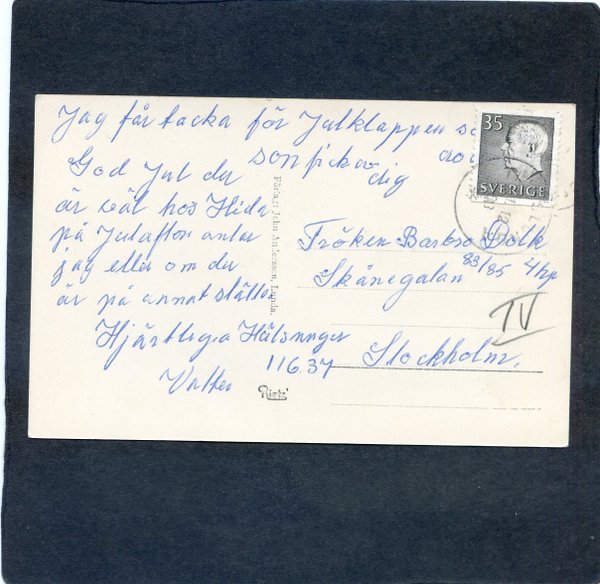 Jag får tacka för Julklappen
som fick av dig
God Jul du
är väl hos Hilda
på Julafton antar
jag eller om du
är på annat ställe
Hjärtliga Hälsningar
Valter
35
SVERIGE
Fröken Barbro
83/85 4 hp
Skånegatan
IV
11637
Stockholm.
Förlag: John Andersson, Lunda.